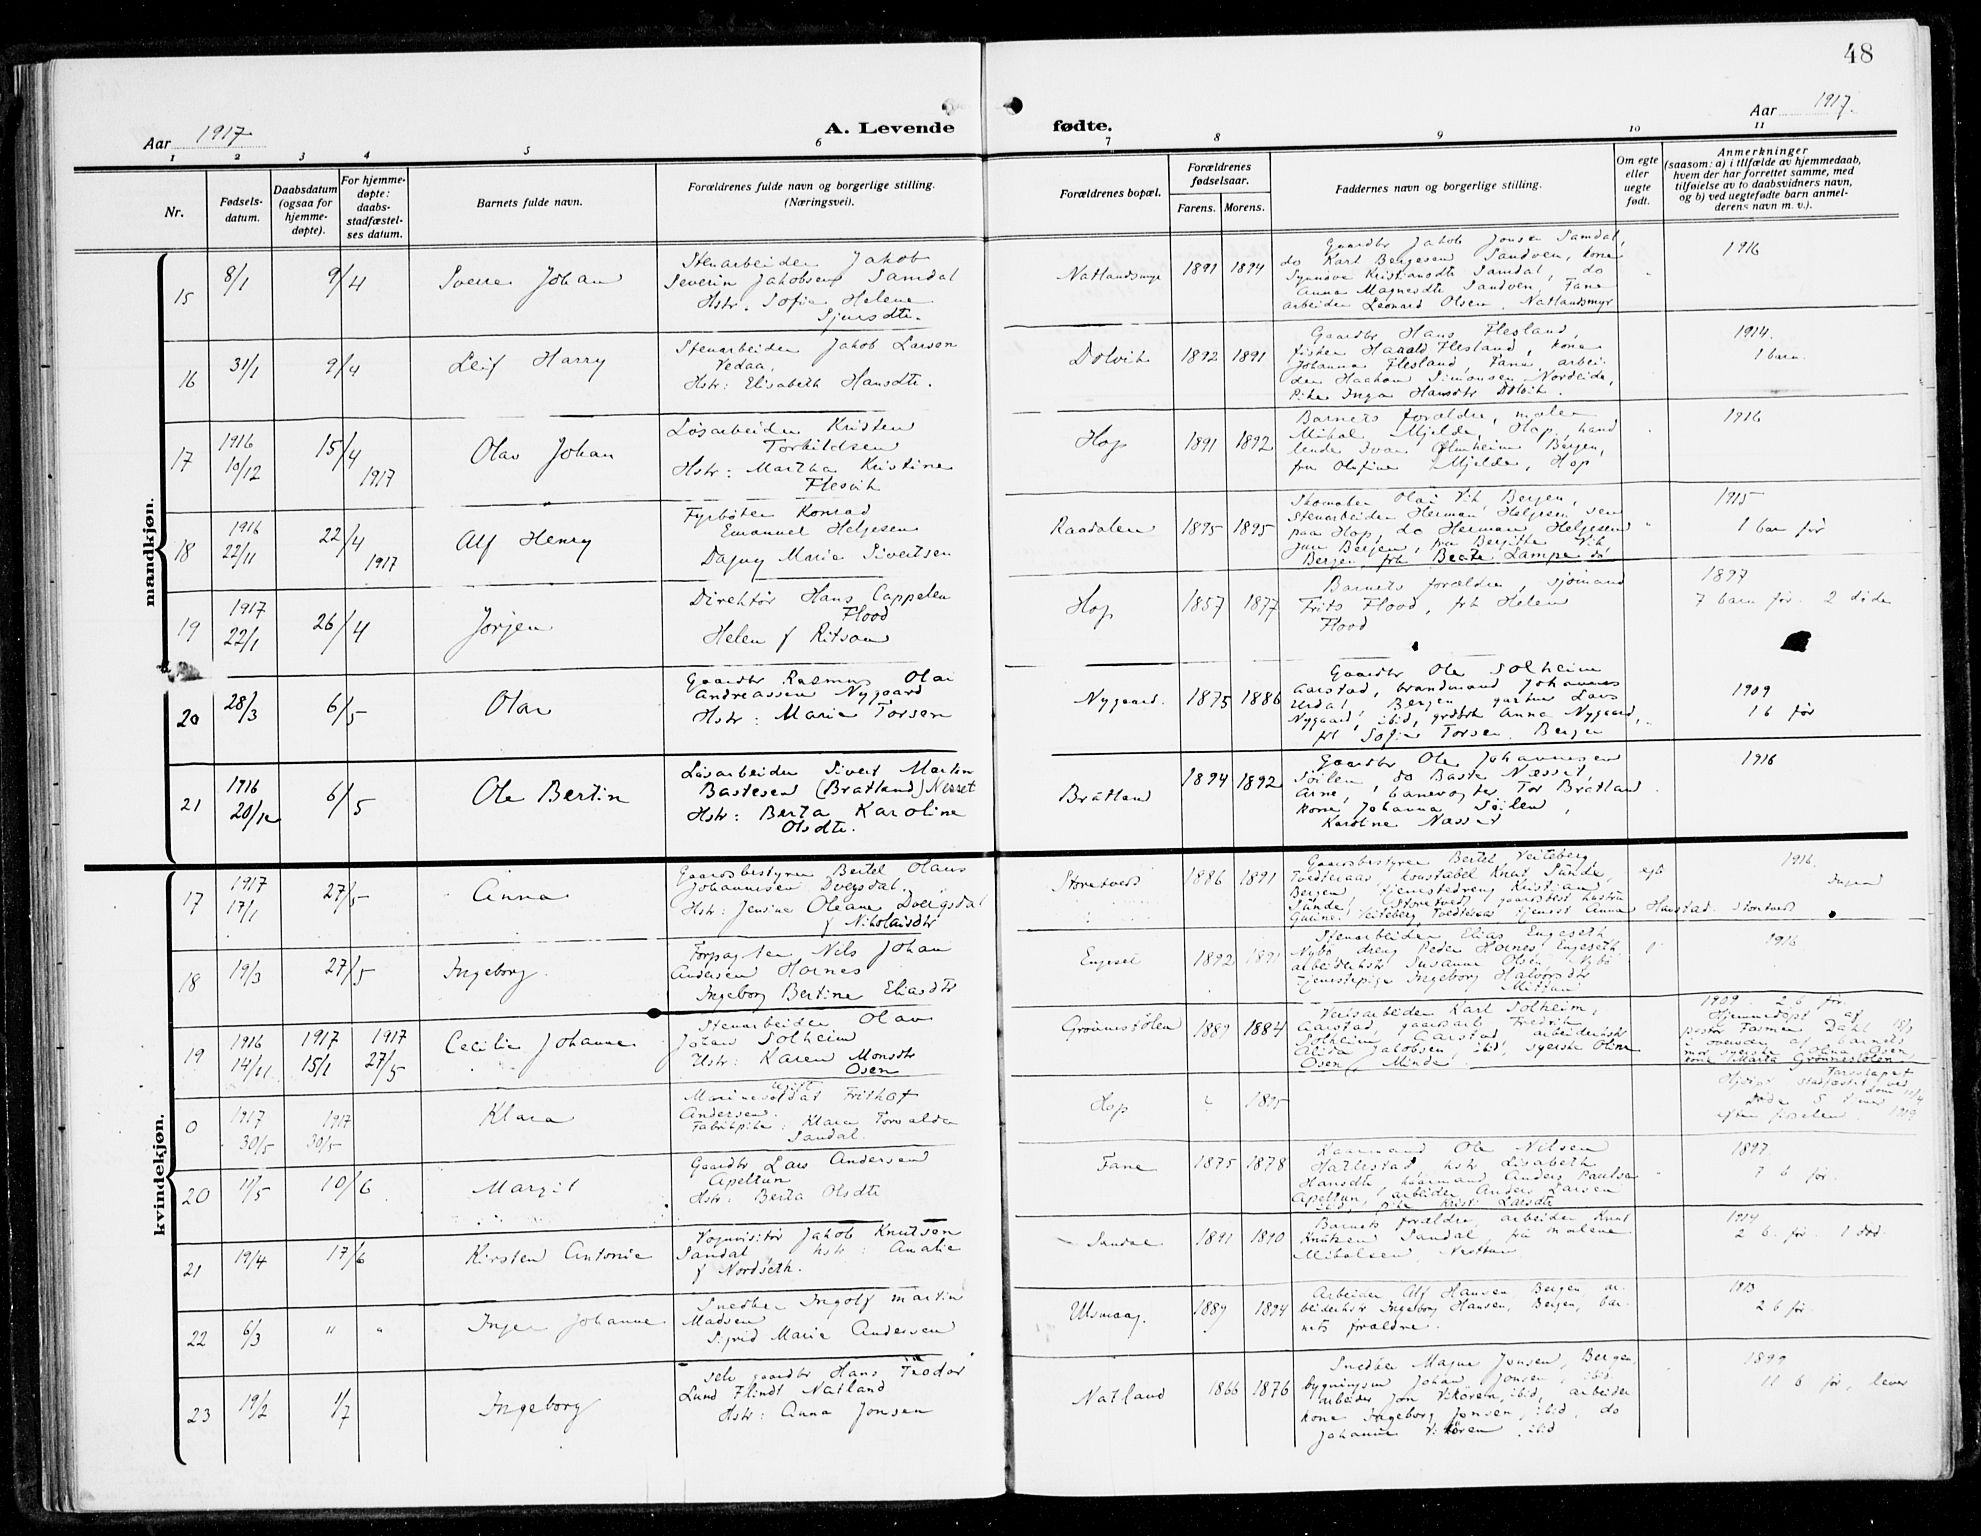 48
Aar 1917
A. Levende fødte.
Aar 1917.
1 2 3 4 5 6 7 8 9 10 11
Nr.
Fødsels-
datum.
Daabsdatum
(ogsaa for
hjemme-
døpte).
For hjemme-
døpte:
daabs-
stadfæstel-
ses datum.
Barnets fulde navn.
Forældrenes fulde navn og borgerlige stilling.
(Næringsvei).
Forældrenes bopæl.
Forældrenes
fødselsaar.
Farens. Morens.
Faddernes navn og borgerlige stilling.
Om egte
eller
uegte
født.
Anmerkninger
(saasom: a) i tilfælde av hjemmedaab,
hvem der har forrettet samme, med
tilføielse av to daabsvidners navn,
og b) ved uegtefødte barn anmel-
derens navn m. v.).
mandkjøn.
15 8/1 9/4 Sverre Johan
Stenarbeider Jakob
Severin Jakobsen Samdal
Hstr. Sofie Helene
Sjursdtr.
Natlandsmyr 1891 1894
Gaardbr Jakob Jonsen Samdal,
do Karl Bergesen Sandven, kone
Synnøve Kristiansdtr Samdal, do
Anna Magnesdtr Sandven, Fane
arbeider Leonard Olsen Natlandsmyr
1916
16 31/1 9/4 Leif Harry
Stenarbeider Jakob Larsen
Vedaa,
Hstr: Elisabeth Hansdtr.
Dolvik 1892 1891
Gaardbr Hans Flesland,
fisker Harald Flesland, kone
Johanna Flesland, Fane, arbei-
der Haakon Simonsen Nordeide,
Pike Inga Hansdtr Dolvik.
1914.
1 barn.
17 1916 10/12 15/4 1917 Olav Johan
Løsarbeider Kristen
Torkildsen
Hstr: Martha Kristine
Flesvik
Hop 1891 1892
Barnets forældre, maler
Mikal Mjelde, Hop, hand
lende Ivar Ølmheim Bergen,
fru Olufine Mjelde, Hop
1916
18 1916 22/11 22/4 1917 Alf Henry
Fyrbøter Konrad
Emanuel Helgesen
Dagny Marie Sivertsen
Raadalen 1895 1895
Skomaker Olai Vik Bergen,
Stenarbeider Herman Helgesen sen
paa Hop, do Herman Helgesen
jun Bergen, fru Bergitte Vik
Bergen, frk Beate Lampe do
1915
1 barn før
19 1917 22/1 26/4 Jørjen
Direktør Hans Cappelen
Flood
Helen f Ritson
Hop 1857 1877
Barnets forældre, sjømand
Frits Flood, frk Helen
Flood
1897
7 barn før. 2 døde
20 28/3 6/5 Olav
Gaardbr Rasmus Olai
Andreassen Nygaard
Hstr: Marie Torsen
Nygaard. 1875 1886
Gaardbr Ole Solheim
Aarstad, brandmand Johannes
Urdal, Bergen gartner Lars
Nygaard, ibid, grdbrk Anna Nygaard,
frk Sofie Torsen Bergen
1909
1 b før
21 1916 20/12 6/5 Ole Bertin
Løsarbeider Sivert Martin
Bastesen (Bratland) Nesset
Hstr: Berta Karoline
Olsdtr.
Bratland 1894 1892
Gaardbr Ole Johannesen
Søilen, do Baste Næsset,
Arne, banevogter Tor Bratland
kone Johanna Søilen,
Karoline Næsset
1916
kvindekjøn.
17 1917 17/1 27/5 Anna
Gaardsbestyrer Bertel Olaus
Johannesen Dvergsdal.
Hstr: Jensine Oleane Dvergsdal
f Nikolaisdtr
Storetvedt 1886 1891
Gaardsbestyrer Bertel Veiteberg,
Tvedteraas, konstabel Knut Sunde,
Bergen tjenestedreng Kristian
Sunde, Storetvedt, gaardsbest hustru
Gurine Veiteberg Tvedteraas tjenest Anna Hanstad. Storetvedt
egte
1916.
18 19/3 27/5 Ingeborg.
Forpagter Nils Johan
Andersen Hornes
Ingeborg Bertine Eliasdtr
Engeset 1892 1891
Stenarbeider Elias Engeseth
Nybø dreng Peder Hornes Engeseth,
arbeiderhstr Susanne Olsen Nybø
tjenestepige Ingeborg Halvorsdtr
Mittun
1916
19 1916 14/11 1917 15/1 1917 27/5 Cecilie Johanne
Stenarbeider Olav
Johan Solheim
Hstr: Karen Monsdtr
Osen
Grønnestølen 1889 1884
Veiarbeider Karl Solheim,
Aarstad, gaardsarb Fredrik
Solheim Aarstad, arbeiderhstr
Alida Jakobsen, ibid, syerske Oline
Osen, Minde.
1909. 2 b før.
Hjemmedøpt af
pastor Fasmer Dahl 15/1
i overvær af barnets
mor, syerske Olina Osen,
kone Marta Grønnestølen
0 1917 30/5 1917 30/5 Klara
Marinesoldat Frithof
Andersen.
Fabrikpike: Klara Torvalda
Sandal.
Hop 1895
20 11/5 10/6 Margit
Gaardbr Lars Andersen
Apeltun
Hstr: Berta Olsdtr
Fane 1875 1878
Kaarmand Ole Nilsen
Hatlestad, hstr Lisabeth
Hansdtr, kaarmand Anders Paulsen
Apeltun, arbeider Anders Larsen
ibid, pike Kristi Larsdtr
1897
7 b før.
21 19/4 17/6 Kirsten Antonie
Vognvisitør Jakob Knutsen
Sandal hstr: Amalie
f Nordseth.
Sandal 1891 1890
Barnets forældre, arbeider Knut
Knutsen Sandal, fru Malene
Mikalsen Nesttun
1914
2 b. før. 1 død.
22 6/3 " " Inger Johanne
Snedker Ingolf Martin
Madsen
Sigrid Marie Andersen
Ulsmaag. 1889 1894
Arbeider Alf Hansen Bergen, ar-
beiderhstr Ingeborg Hansen, Bergen, bar-
nets forældre.
1913
2 b før
23 19/2 1/7 Ingeborg
selv gaardbr Hans Teodor
Lund Flindt Natland
Hstr: Anna Jonsen
Natland 1866 1876
Snedker Magne Jonsen, Bergen
bygningsm Johan Jonsen, ibid.
arbeider Jon Vikøren, ibid, arbeider
kone Ingeborg Jonsen, ibid, do
Johanne Vikøren ibid
1899
11 b før, lever